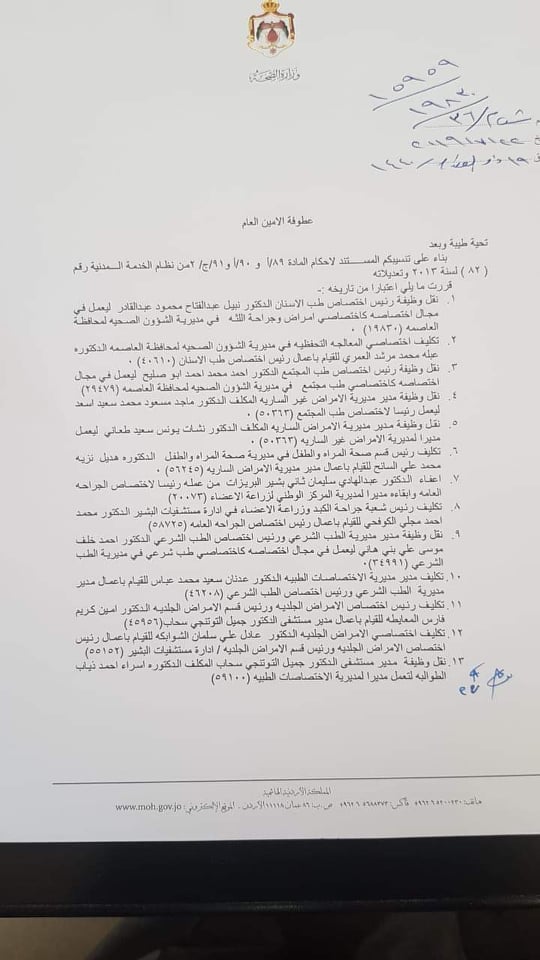 وزارة الصحة
١٥٩٥٩
١٩٨٣٠
عطوفة الامين العام
تحية طيبة وبعد
بناء على تنسيبكم المستند لاحكام المادة ٨٩/أ و ٩٠/أ و٩١/ج/ ٢من نظام الخدمة المدنية رقم
( ٨٢ ) لسنة ٢٠١٣ وتعديلاته
قررت ما يلي اعتبارا من تاريخه :-
١. نقل وظيفة رئيس اختصاص طب الاسنان الدكتور نبيل عبدالفتاح محمود عبدالقادر ليعمل في
مجال اختصاصه كاختصاصي امراض وجراحة اللثه في مديرية الشؤون الصحيه لمحافظة
العاصمه (١٩٨٣٠) ٠
٢. تكليف اختصاصي المعالجه التحفظيه في مديرية الشؤون الصحيه لمحافظة العاصمه الدكتوره
عبله محمد مرشد العمري للقيام باعمال رئيس اختصاص طب الاسنان (٤٠٦١٠) ٠
٣. نقل وظيفة رئيس اختصاص طب المجتمع الدكتور احمد محمد احمد ابو صليح ليعمل في مجال
اختصاصه كاختصاصي طب مجتمع في مديرية الشؤون الصحيه لمحافظة العاصمه (٢٩٤٧٩)
٤. نقل وظيفة مدير مديرية الامراض غير الساريه المكلف الدكتور ماجد مسعود محمد سعيد اسعد
ليعمل رئيسا لاختصاص طب المجتمع (٥٠٣٦٣)
٥. نقل وظيفة مدير مديرية الامراض الساريه المكلف الدكتور نشات يونس سعيد طعاني ليعمل
مديرا لمديرية الامراض غير الساريه (٥٠٣٦٣) ٠
٦. تكليف رئيس قسم صحة المراه والطفل في مديرية صحة المراه والطفل الدكتوره هديل نزيه
محمد علي السائح للقيام باعمال مدير مديرية الامراض الساريه (٥٦٢٤٥) ٠
٧. اعفاء الدكتور عبدالهادي سليمان ثاني بشير البريزات من عمله رئيسا لاختصاص الجراحه
العامه وابقاءه مديرا لمديرية المركز الوطني لزراعة الاعضاء (٢٠٠٧٣)
٨. تكليف رئيس شعبة جراحة الكبد وزراعة الاعضاء في ادارة مستشفيات البشير الدكتور محمد
احمد مجلي الكوفحي للقيام باعمال رئيس اختصاص الجراحه العامه (٥٨٧٢٥)
٩. نقل وظيفة مدير مديرية الطب الشرعي ورئيس اختصاص الطب الشرعي الدكتور احمد خلف
موسى علي بني هاني ليعمل في مجال اختصاصه كاختصاصي طب شرعي في مديرية الطب
الشرعي (٣٤٩٩١)٠
١٠. تكليف مدير مديرية الاختصاصات الطبيه الدكتور عدنان سعيد محمد عباس للقيام باعمال مدير
مديرية الطب الشرعي ورئيس اختصاص الطب الشرعي (٤٦٢٠٨)
١١. تكليف رئيس اختصاص الامراض الجلديه ورئيس قسم الامراض الجلديه الدكتور امين كريم
فارس المعايطه للقيام باعمال مدير مستشفى الدكتور جميل التوتنجي سحاب(٤٥٩٥٦)
١٢. تكليف اختصاصي الامراض الجلديه الدكتور عادل علي سلمان الشوابكه للقيام باعمال رئيس
اختصاص الامراض الجلديه ورئيس قسم الامراض الجلديه / ادارة مستشفيات البشير (٥٥١٥٢)
١٣. نقل وظيفة مدير مستشفى الدكتور جميل التوتنجي سحاب المكلف الدكتوره اسراء احمد ذياب
الطوالبه لتعمل مديرا لمديرية الاختصاصات الطبيه (٥٩١٠٠)
المملكة الأردنية الهاشمية
هاتف: ٥٢٠٠٢٣٠ ٦ ٩٦٢ فاكس: ٥٦٨٨٣٧٣ ٦ ٩٦٢ ص.ب: ٨٦ عمان ١١١١٨ الأردن . الموقع الإلكتروني: www.moh.gov.jo